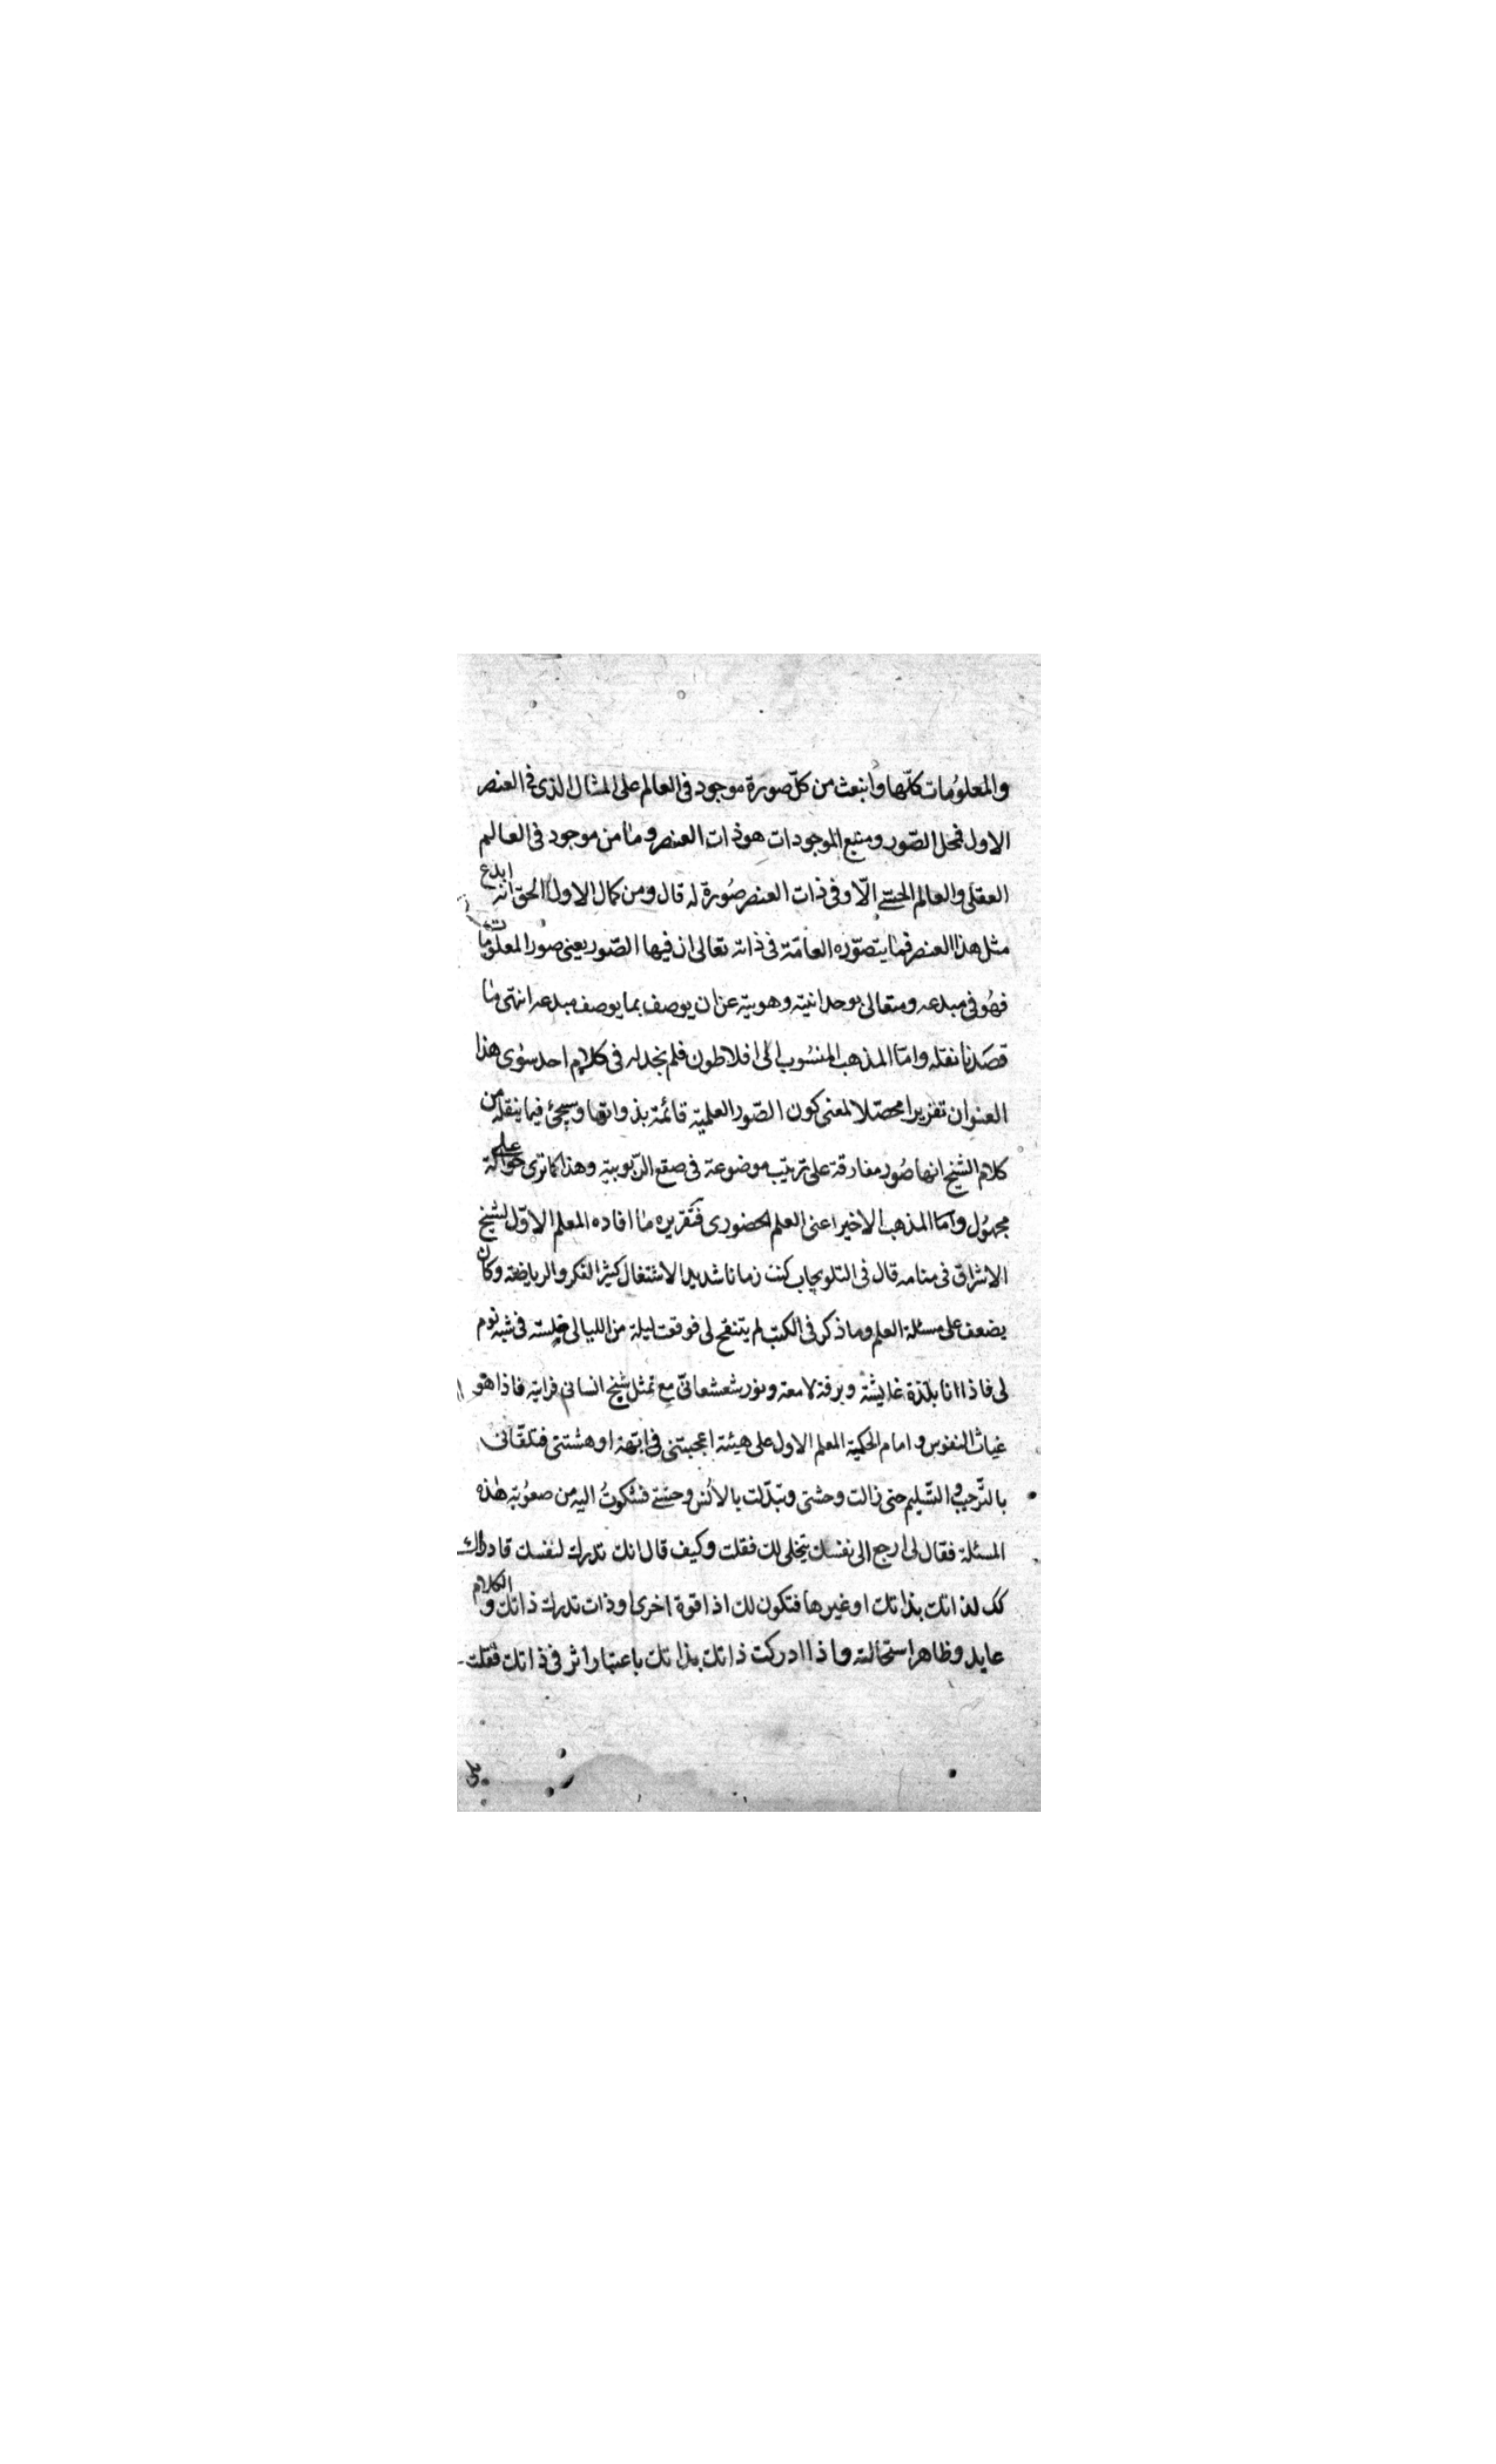 والمعلومات كلّها وانبعث من كلّ صورة موجود فى العالم على المثال الذى فى العنصر
الاول فمحل الصّور ومنبع الموجودات هو ذات العنصر وما من موجود فى العالم
العقلى والعالم الحسّى الّا وفى ذات العنصر صُورة له قال ومن كمال الاول الحق انه ابدع
مثل هذا العنصر فما يتصوّره العامّة فى ذاته تعالى ان فيها الصّور يعنى صور المعلومات
فهُو فى مبدعه ومتعالى بوحدانيته وهويته عن ان يوصف بما يوصف مبدعه انتهى ما
قصَدنا نقله وامّا المذهب المنسُوب الى افلاطون فلم نجد له فى كلام احد سوٰى هذا
العنوان تقريرا محصّلا لمعنى كون الصّور العلمية قائمة بذواتها وسيجئ فيما ينقله من
كلام الشيخ انها صُور مفارقة على ترتيب موضوعة فى صقع الرّبوبية وهذا كما ترى حوالة على
مجهُول وامّا المذهب الاخير اعنى العلم الحضورى فتقريره ما افاده المعلم الاوّل لشيخ
الاشراق فى منامه قال فى التلويحات كنت زمانا شديد الاشتغال كثير الفكر والرياضة وكان
يصعف على مسئلة العلم وما ذكر فى الكتب لم يتنقح لى فوقعت ليلة من الليالى خلسة فى شبه نوم
لى فاذا انا بلذة غايشة وبرقة لامعة ونور شعشعانى مع تمثل شبح انسانى فرايته فاذا هو
غياث النفوس و امام الحكمة المعلم الاول على هيئة اعجبتنى فى ابهة اوهشتنى فتلقّانى
بالتّرحيب و التّسليم حتى زالت وحشتى وتبدّلت بالاُنس وحشتى فشكوتُ اليه من صعُوبة هٰذه
المسئلة فقال لى ارجع الى نفسك يتجلى لك فقلت وكيف قال انك تدرك لنفسك فادراك
كك لذاتك بذاتك او غيرها فتكون لك اذا قوة اخرى او ذات تدرك ذاتك و الكلام
عايد وظاهر استحالته واذا ادركت ذاتك بذاتك باعتبار اثر فى ذاتك فقلت